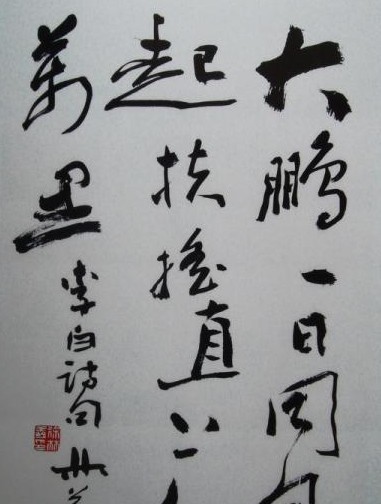 大鹏一日同
起扶摇直上
萬里
李白诗句